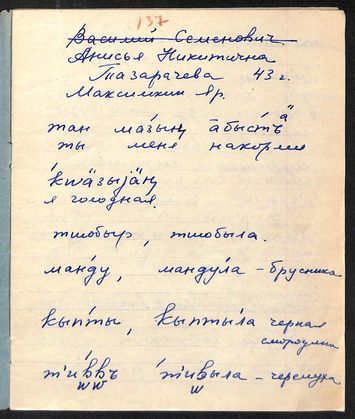 137
Василий Семенович.
Анисья Никитична
Тазарачева 43 г.
Максимкин Яр.
тан ма́зың а̄бы́сть
ӓ
ты меня накорми
кwа́зыjäң
я голодная.
тшобыр, тшобыла.
ма́нду, манду́ла - брусника
кыпты, кыпты́ла черная
смородина